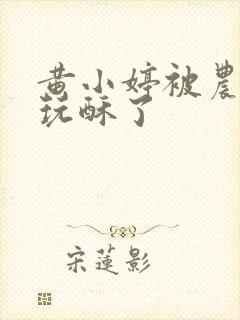 黄小婷被農
玩酥了
宋蓮影